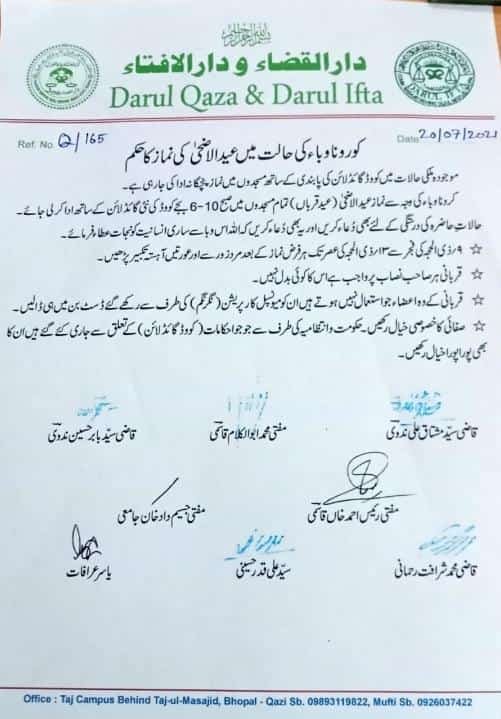 دار القضاء و دار الافتاء
Darul Qaza & Darul Ifta
Ref. No. Q/165
Date 20/07/2021
کورونا وباء کی حالت میں عید الاضحیٰ کی نماز کا حکم
موجودہ ملکی حالات میں کووڈ گائڈ لائن کی پابندی کے ساتھ مسجدوں میں نماز پنجگانہ ادا کی جارہی ہے۔
کرونا وباء کی وجہ سے نماز عید الاضحیٰ (عید قرباں) تمام مسجدوں میں صبح 6-10 بجے کووڈ کی نئی گائڈ لائن کے ساتھ ادا کر لی جائے۔
حالات حاضرہ کی درستگی کے لئے بھی دُعاء کریں اور یہ بھی دُعاء کریں کہ اللہ اس وبا سے ساری انسانیت کو نجات عطا فرمائے۔
☆ ۹؍ذی الحجہ کی فجر سے ۱۳؍ذی الحجہ کی عصر تک ہر فرض نماز کے بعد مرد زور سے اور عورتیں آہستہ تکبیر پڑھیں۔
☆ قربانی ہر صاحب نصاب پر واجب ہے اس کا کوئی بدل نہیں۔
☆ قربانی کے وہ اعضاء جو استعمال نہیں ہوتے ہیں ان کو میونسپل کارپریشن (نگر نگم) کی طرف سے رکھے گئے ڈسٹ بن میں ہی ڈالیں۔
☆ صفائی کا خصوصی خیال رکھیں۔ حکومت وانتظامیہ کی طرف سے جو جو احکامات (کووڈ گائڈ لائن) کے تعلق سے جاری کئے گئے ہیں ان کا
بھی پورا پورا خیال رکھیں۔
قاضی سید مشتاق علی ندوی
مفتی محمد ابوالکلام قاسمی
قاضی سید بابر حسین ندوی
مفتی رئیس احمد خاں قاسمی
مفتی جسیم داد خان جامعی
قاضی محمد شرافت رحمانی
سید علی قدر حسینی
یاسر عرافات
Office : Taj Campus Behind Taj-ul-Masajid, Bhopal - Qazi Sb. 09893119822, Mufti Sb. 0926037422